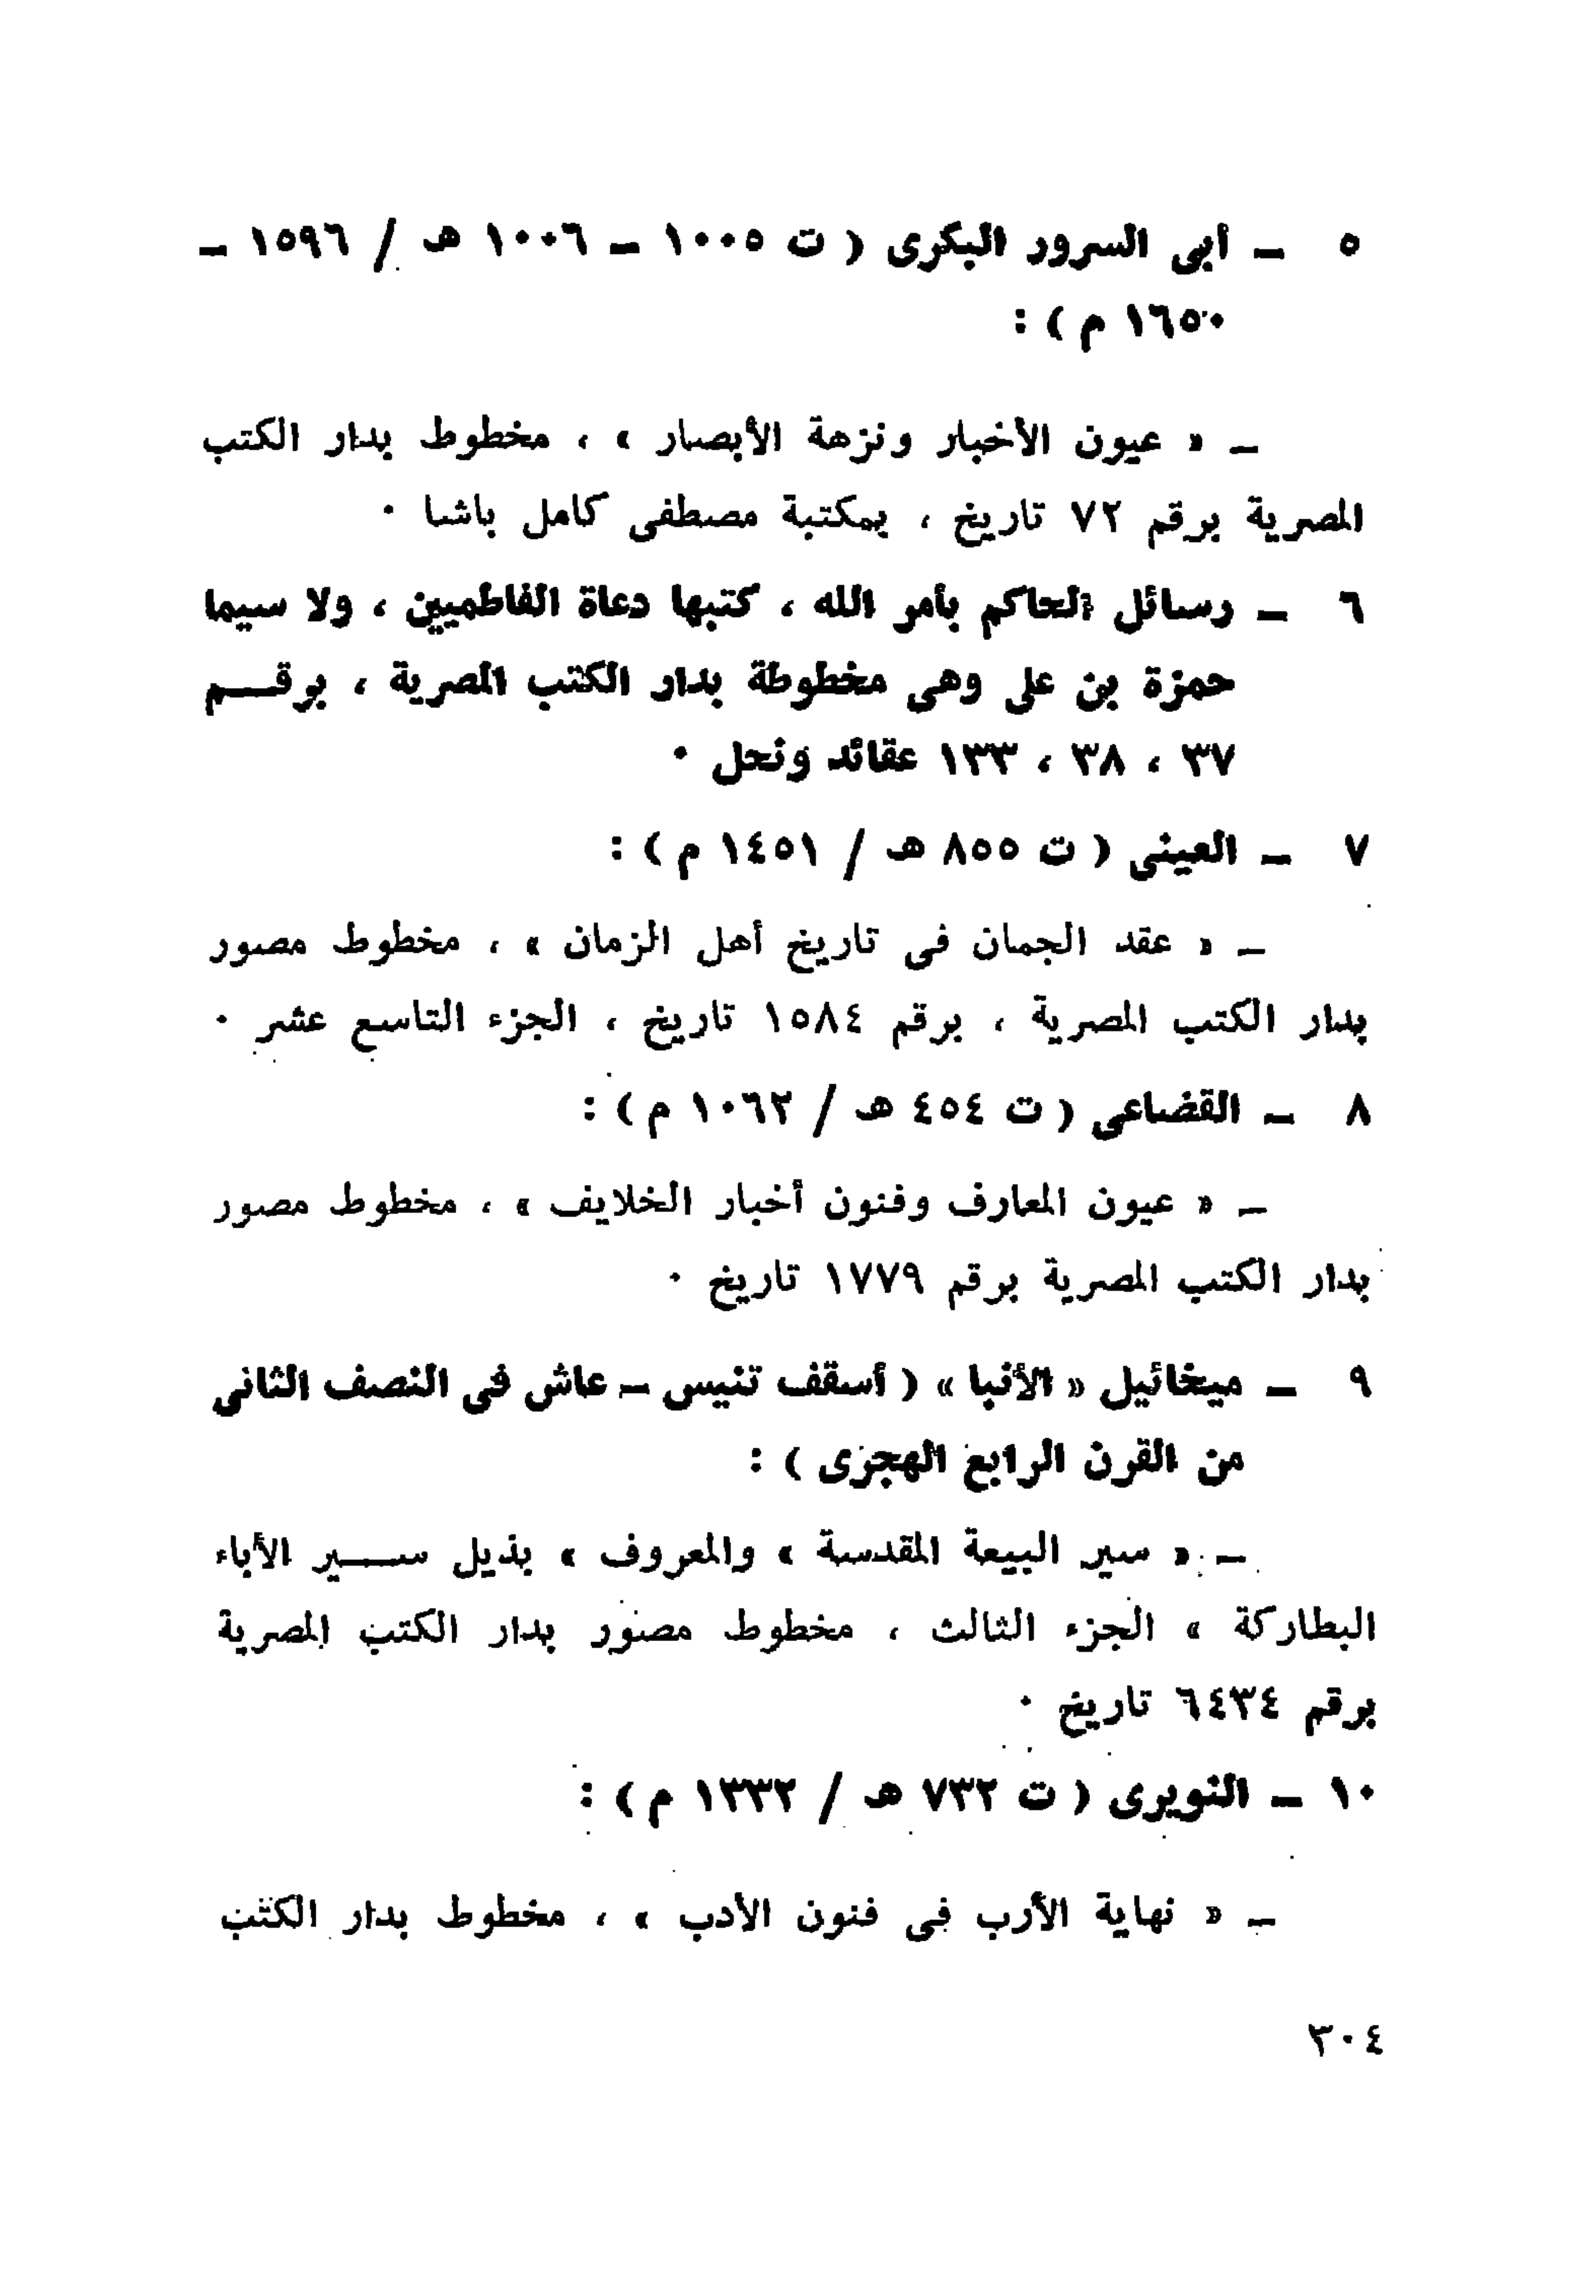 ٥ – أبى السرور البكرى ( ت ١٠٠٥ – ١٠٠٦ هـ / ١٥٩٦ –
١٦٥٠ م ) :
– « عيون الأخبار ونزهة الأبصار » ، مخطوط بدار الكتب
المصرية برقم ٧٢ تاريخ ، بمكتبة مصطفى كامل باشا ٠
٦ – رسائل الحاكم بأمر الله ، كتبها دعاة الفاطميين ، ولا سيما
حمزة بن على وهى مخطوطة بدار الكتب المصرية ، برقـــم
٣٧ ، ٣٨ ، ١٣٣ عقائد ونحل ٠
٧ – العينى ( ت ٨٥٥ هـ / ١٤٥١ م ) :
– « عقد الجمان فى تاريخ أهل الزمان » ، مخطوط مصور
بدار الكتب المصرية ، برقم ١٥٨٤ تاريخ ، الجزء التاسع عشر ٠
٨ – القضاعى ( ت ٤٥٤ هـ / ١٠٦٢ م ) :
– « عيون المعارف وفنون أخبار الخلايف » ، مخطوط مصور
بدار الكتب المصرية برقم ١٧٧٩ تاريخ ٠
٩ – ميخائيل « الأنبا » ( أسقف تنيس – عاش فى النصف الثانى
من القرن الرابع الهجرى ) :
– « سير البيعة المقدسة » والمعروف » بذيل ســـير الأباء
البطاركة » الجزء الثالث ، مخطوط مصور بدار الكتب المصرية
برقم ٦٤٣٤ تاريخ ٠
١٠ – النويرى ( ت ٧٣٢ هـ / ١٣٣٢ م ) :
– « نهاية الأرب فى فنون الأدب » ، مخطوط بدار الكتب
٣٠٤